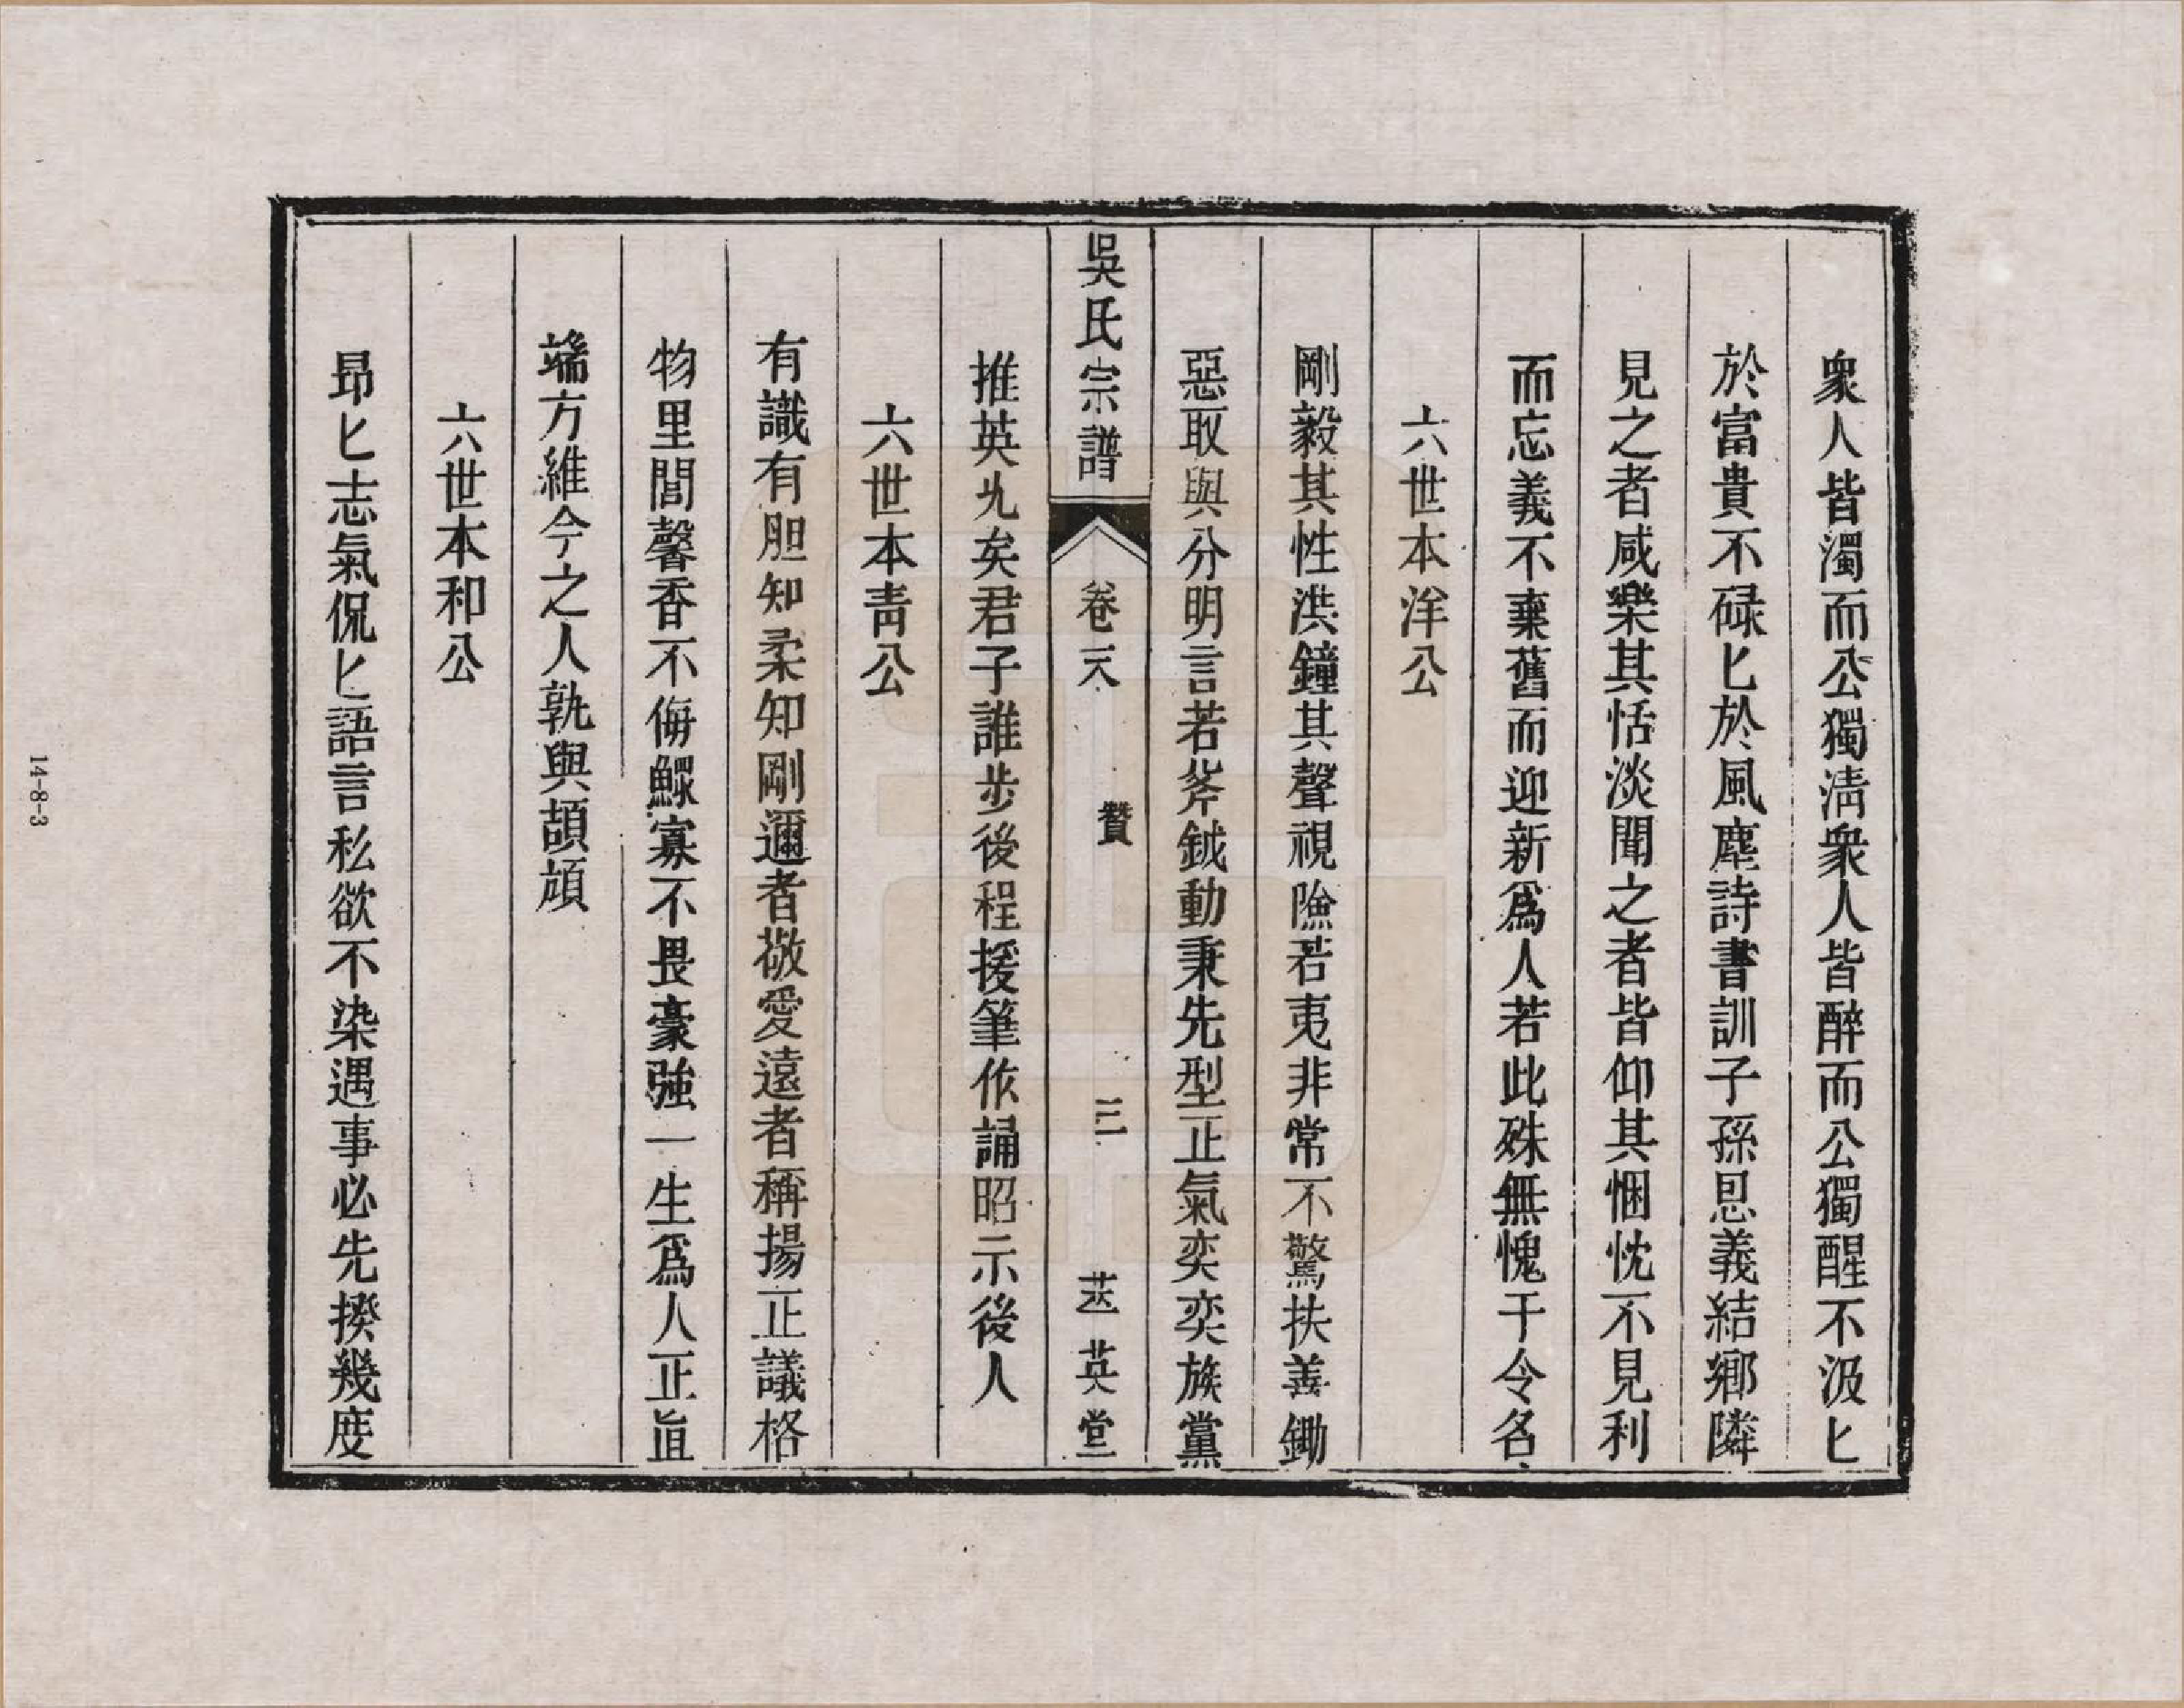 衆人皆濁而公獨清衆人皆醉而公獨醒不汲匕
於富貴不碌匕於風塵詩書訓子孫思義結鄉隣
見之者咸樂其恬淡聞之者皆仰其悃忱不見利
而忘義不棄舊而迎新爲人若此殊無愧于令名
六世本洋公
剛毅其性洪鐘其聲視險若夷非常不驚扶善鋤
惡取與分明言若斧鉞動秉先型正氣奕奕族黨
吳氏宗譜
卷一八
贊
三
英堂
推英九矣君子誰步後程援筆作誦昭示後人
六世本青公
有識有胆知柔知剛邇者敬愛遠者稱揚正議格
物里閭馨香不侮鰥寡不畏豪強一生爲人正直
端方維今之人孰與頡頏
六世本和公
昂匕志氣侃匕語言私欲不染遇事必先揆幾度
14-8-3